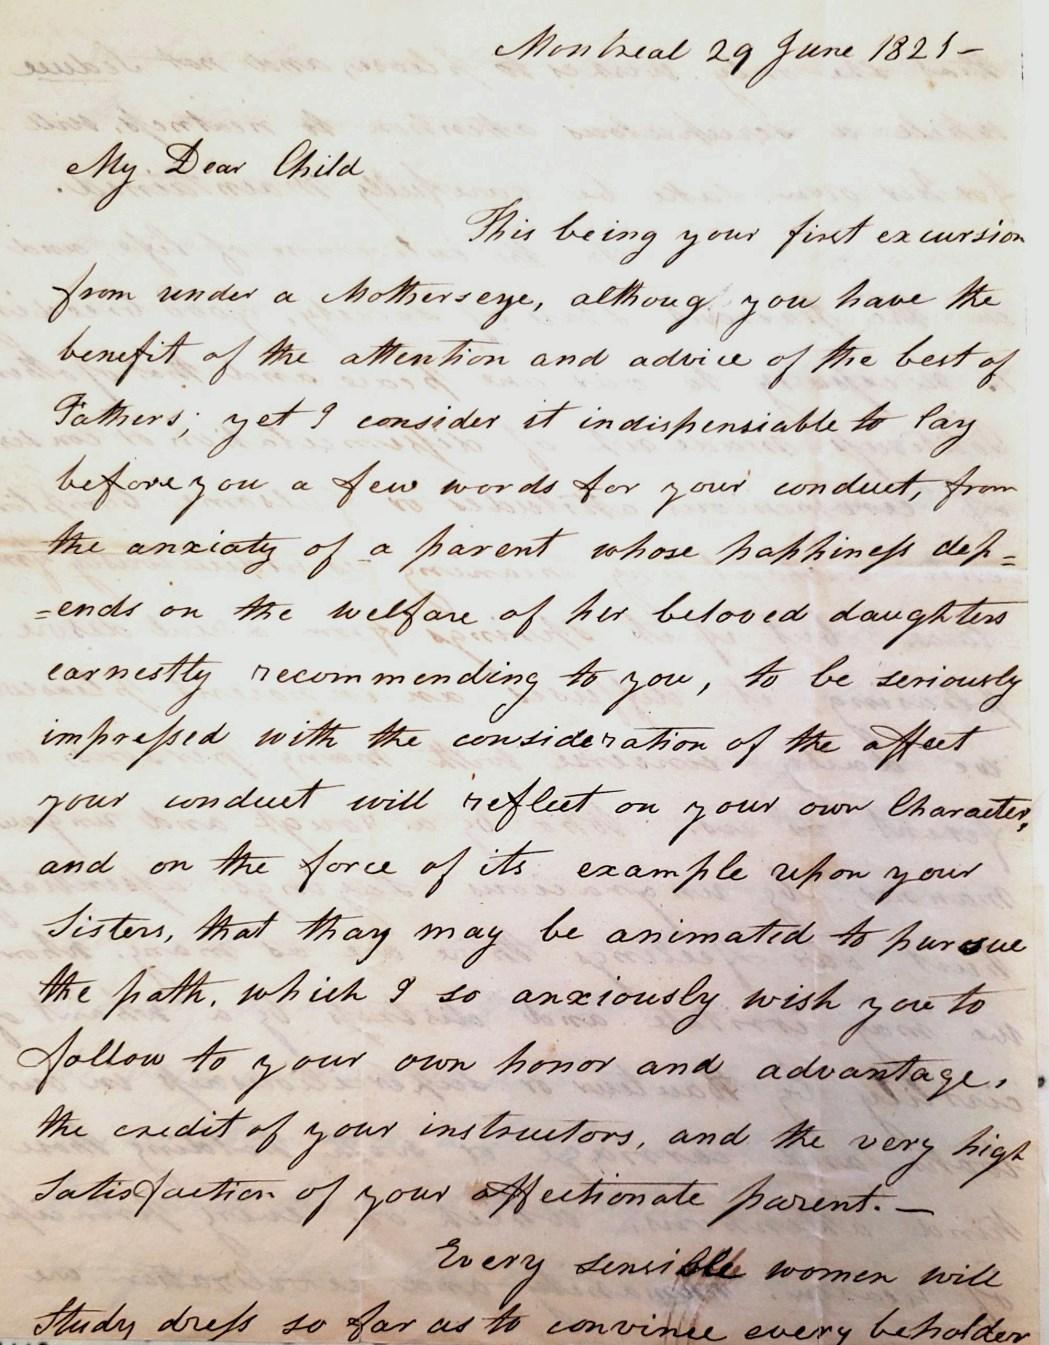 Montreal 29 June 1821 –
My Dear Child
This being your first excursion
from under a Mothers eye, althoug you have the
benefit of the attention and advice of the best of
Fathers; yet I consider it indispensiable to lay
before you a few words for your conduct, from
the anxiaty of a parent whose happineſs dep=
=ends on the welfare of her beloved daughters
earnestly recommending to you, to be seriously
impreſsed with the consideration of the affect
your conduct will reflect on your own Character,
and on the force of its example upon your
Sisters, that thay may be animated to pursue
the path, which I so anxiously wish you to
follow to your own honor and advantage,
the credit of your instructors, and the very high
Satisfaction of your affectionate parent. –
Every sensible women will
Study dreſs so far as to convince every beholder